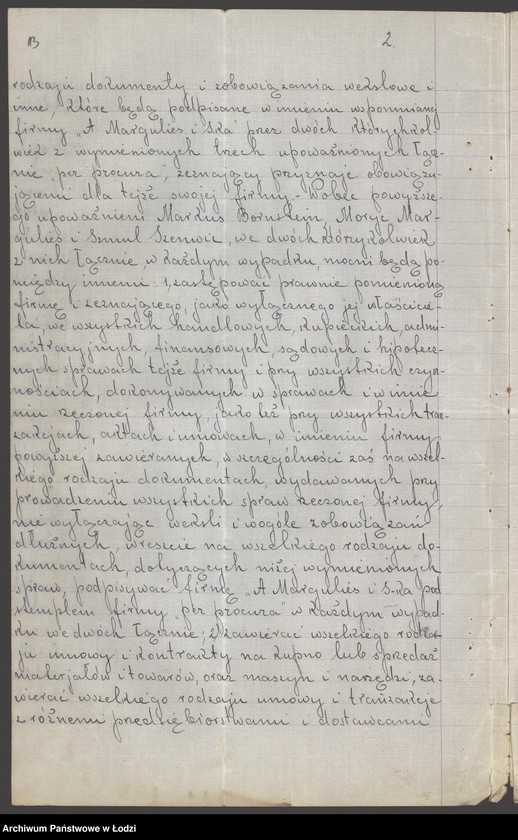 113 2.
rodzaju dokumenty i zobowiązania wekslowe i
inne, które będą podpisane w imieniu wspomnianej
firmy „A Margulies i S-ka" przez dwóch którychkol-
wiek z wymienionych trzech upoważnionych łącz-
nie „per procura", zeznający przyznaje obowiązu-
jącemi dla tejże swojej firmy.- Wobec powyższe-
go upoważnieni Markus Bornstein, Moryc Mar-
gulies i Szmul Szenwic, we dwóch którzykolwiek
z nich łącznie, w każdym wypadku, mocni będą po-
między innemi: 1, zastępować prawnie pomienioną
firmę i zeznającego, jako wyłącznego jej właścicie-
la, we wszystkich handlowych, kupieckich, admi-
nistracyjnych, finansowych, sądowych i hipotecz-
nych sprawach tejże firmy i przy wszystkich czyn-
nościach, dokonywanych w sprawach i w imie-
niu rzeczonej firmy, jako też przy wszystkich tran-
zakcjach, aktach i umowach, w imieniu firmy
powyższej zawieranych, w szczególności zaś na wszel-
kiego rodzaju dokumentach, wydawanych przy
prowadzeniu wszystkich spraw rzeczonej firmy,
nie wyłączając weksli i wogóle zobowiązań
dłużnych, wreszcie na wszelkiego rodzaju do-
kumentach, dotyczących niżej wymienionych
spraw, podpisywać firmę „A Margulies i S-ka pod
stemplem firmy „per procura" w każdym wypad-
ku we dwóch łącznie; 2) zawierać wszelkiego rodza-
ju umowy i kontrakty na kupno lub sprzedaż
materjałów i towarów, oraz maszyn i narzędzi, za-
wierać wszelkiego rodzaju umowy i tranzakcje
z różnemi przedsiębiorstwami i dostawcami
Archiwum Państwowe w Łodzi